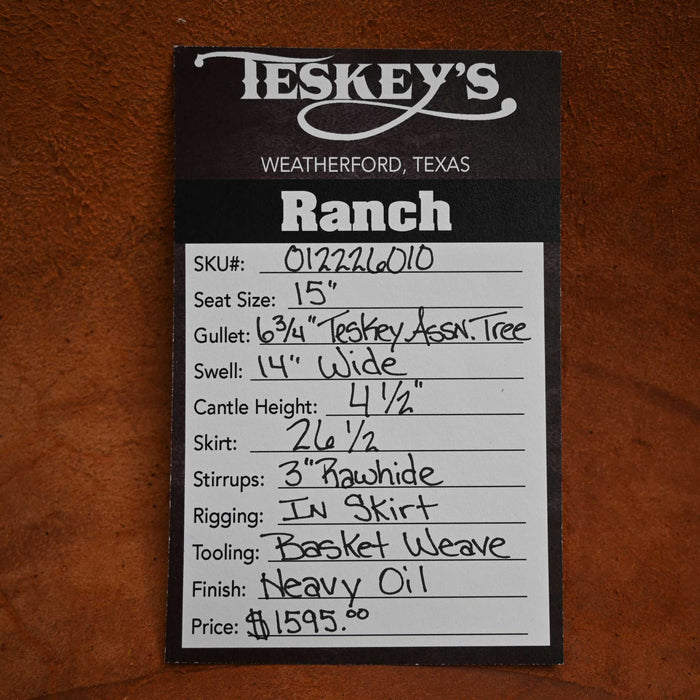 TESKEY'S
WEATHERFORD, TEXAS
Ranch
SKU#: 012226010
Seat Size: 15"
Gullet: 6 3/4" Teskey Assn. Tree
Swell: 14" Wide
Cantle Height: 4 1/2"
Skirt: 26 1/2
Stirrups: 3" Rawhide
Rigging: In Skirt
Tooling: Basket Weave
Finish: Heavy Oil
Price: $1595.00